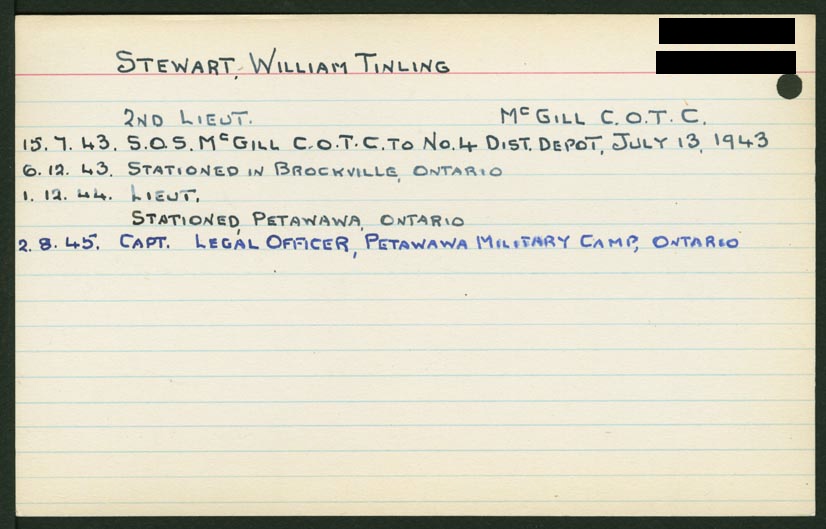 STEWART, WILLIAM TINLING
2ND LIEUT. McGILL C.O.T.C.
15.7.43. S.O.S. McGILL C.O.T.C. TO No.4 DIST. DEPOT, JULY 13, 1943
6.12.43. STATIONED IN BROCKVILLE, ONTARIO
1.12.44. LIEUT.
STATIONED, PETAWAWA, ONTARIO
2.8.45. CAPT. LEGAL OFFICER, PETAWAWA MILITARY CAMP, ONTARIO